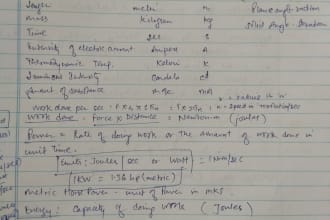 Length metre m Plane angle - radian
Mass Kilogram kg Solid Angle - Steradian
Time sec s
Intensity of electric current Ampere A
Thermodynamic Temp. Kelvin K
Luminous Intensity Candela cd
Amount of substance mole mol
work done per sec :
work done = Force x Distance = Newton-m (joules)
Power = Rate of doing work or the amount of work done in
unit time.
Units: Joules / sec or Watt = 1 Nm/sec
1KW = 1.36 hp (metric)
Metric Horse Power - unit of Power in mks
Energy: Capacity of doing work (Joules)